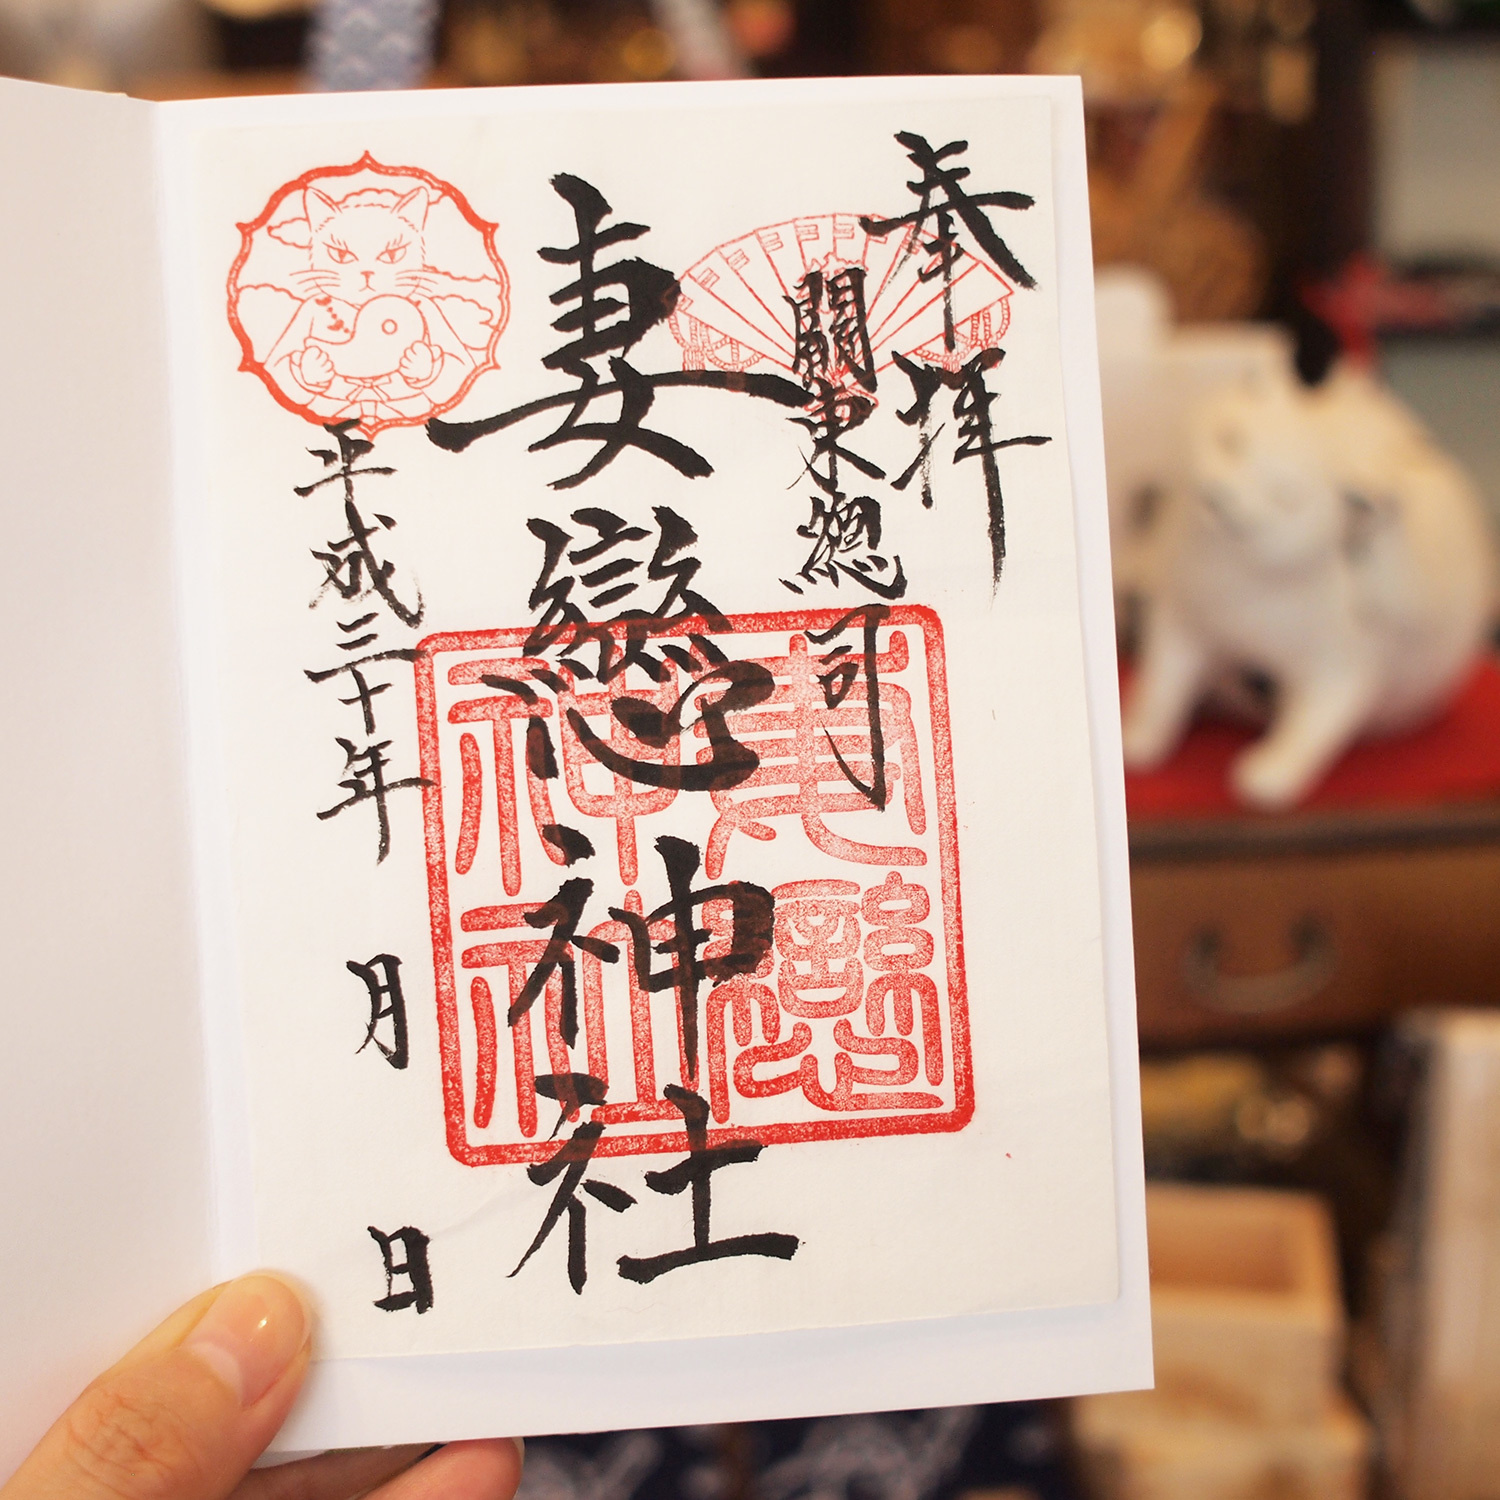 奉拝
關東總司
妻戀神社
妻戀神社
平成三十年
月
日